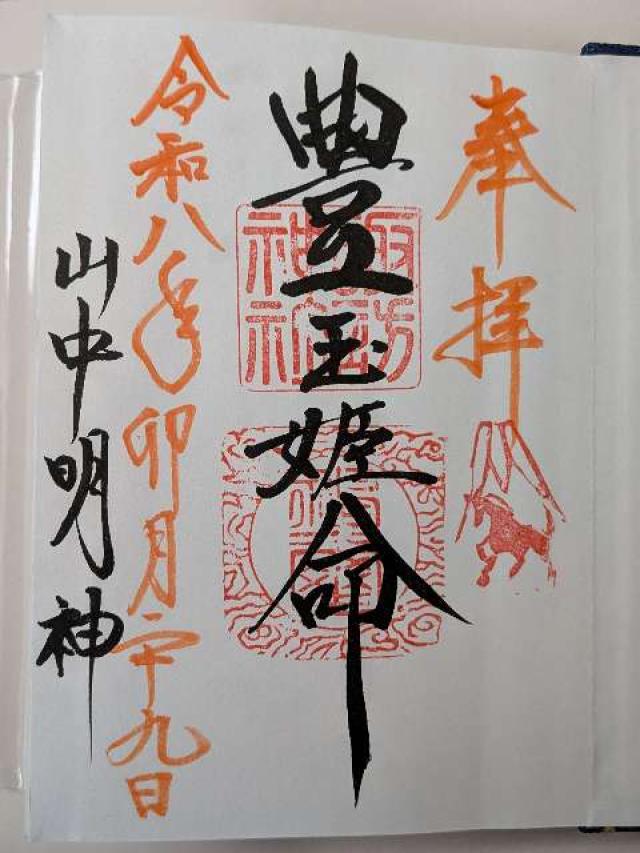 奉拝
豊玉姫命
令和八年卯月二十九日
山中明神